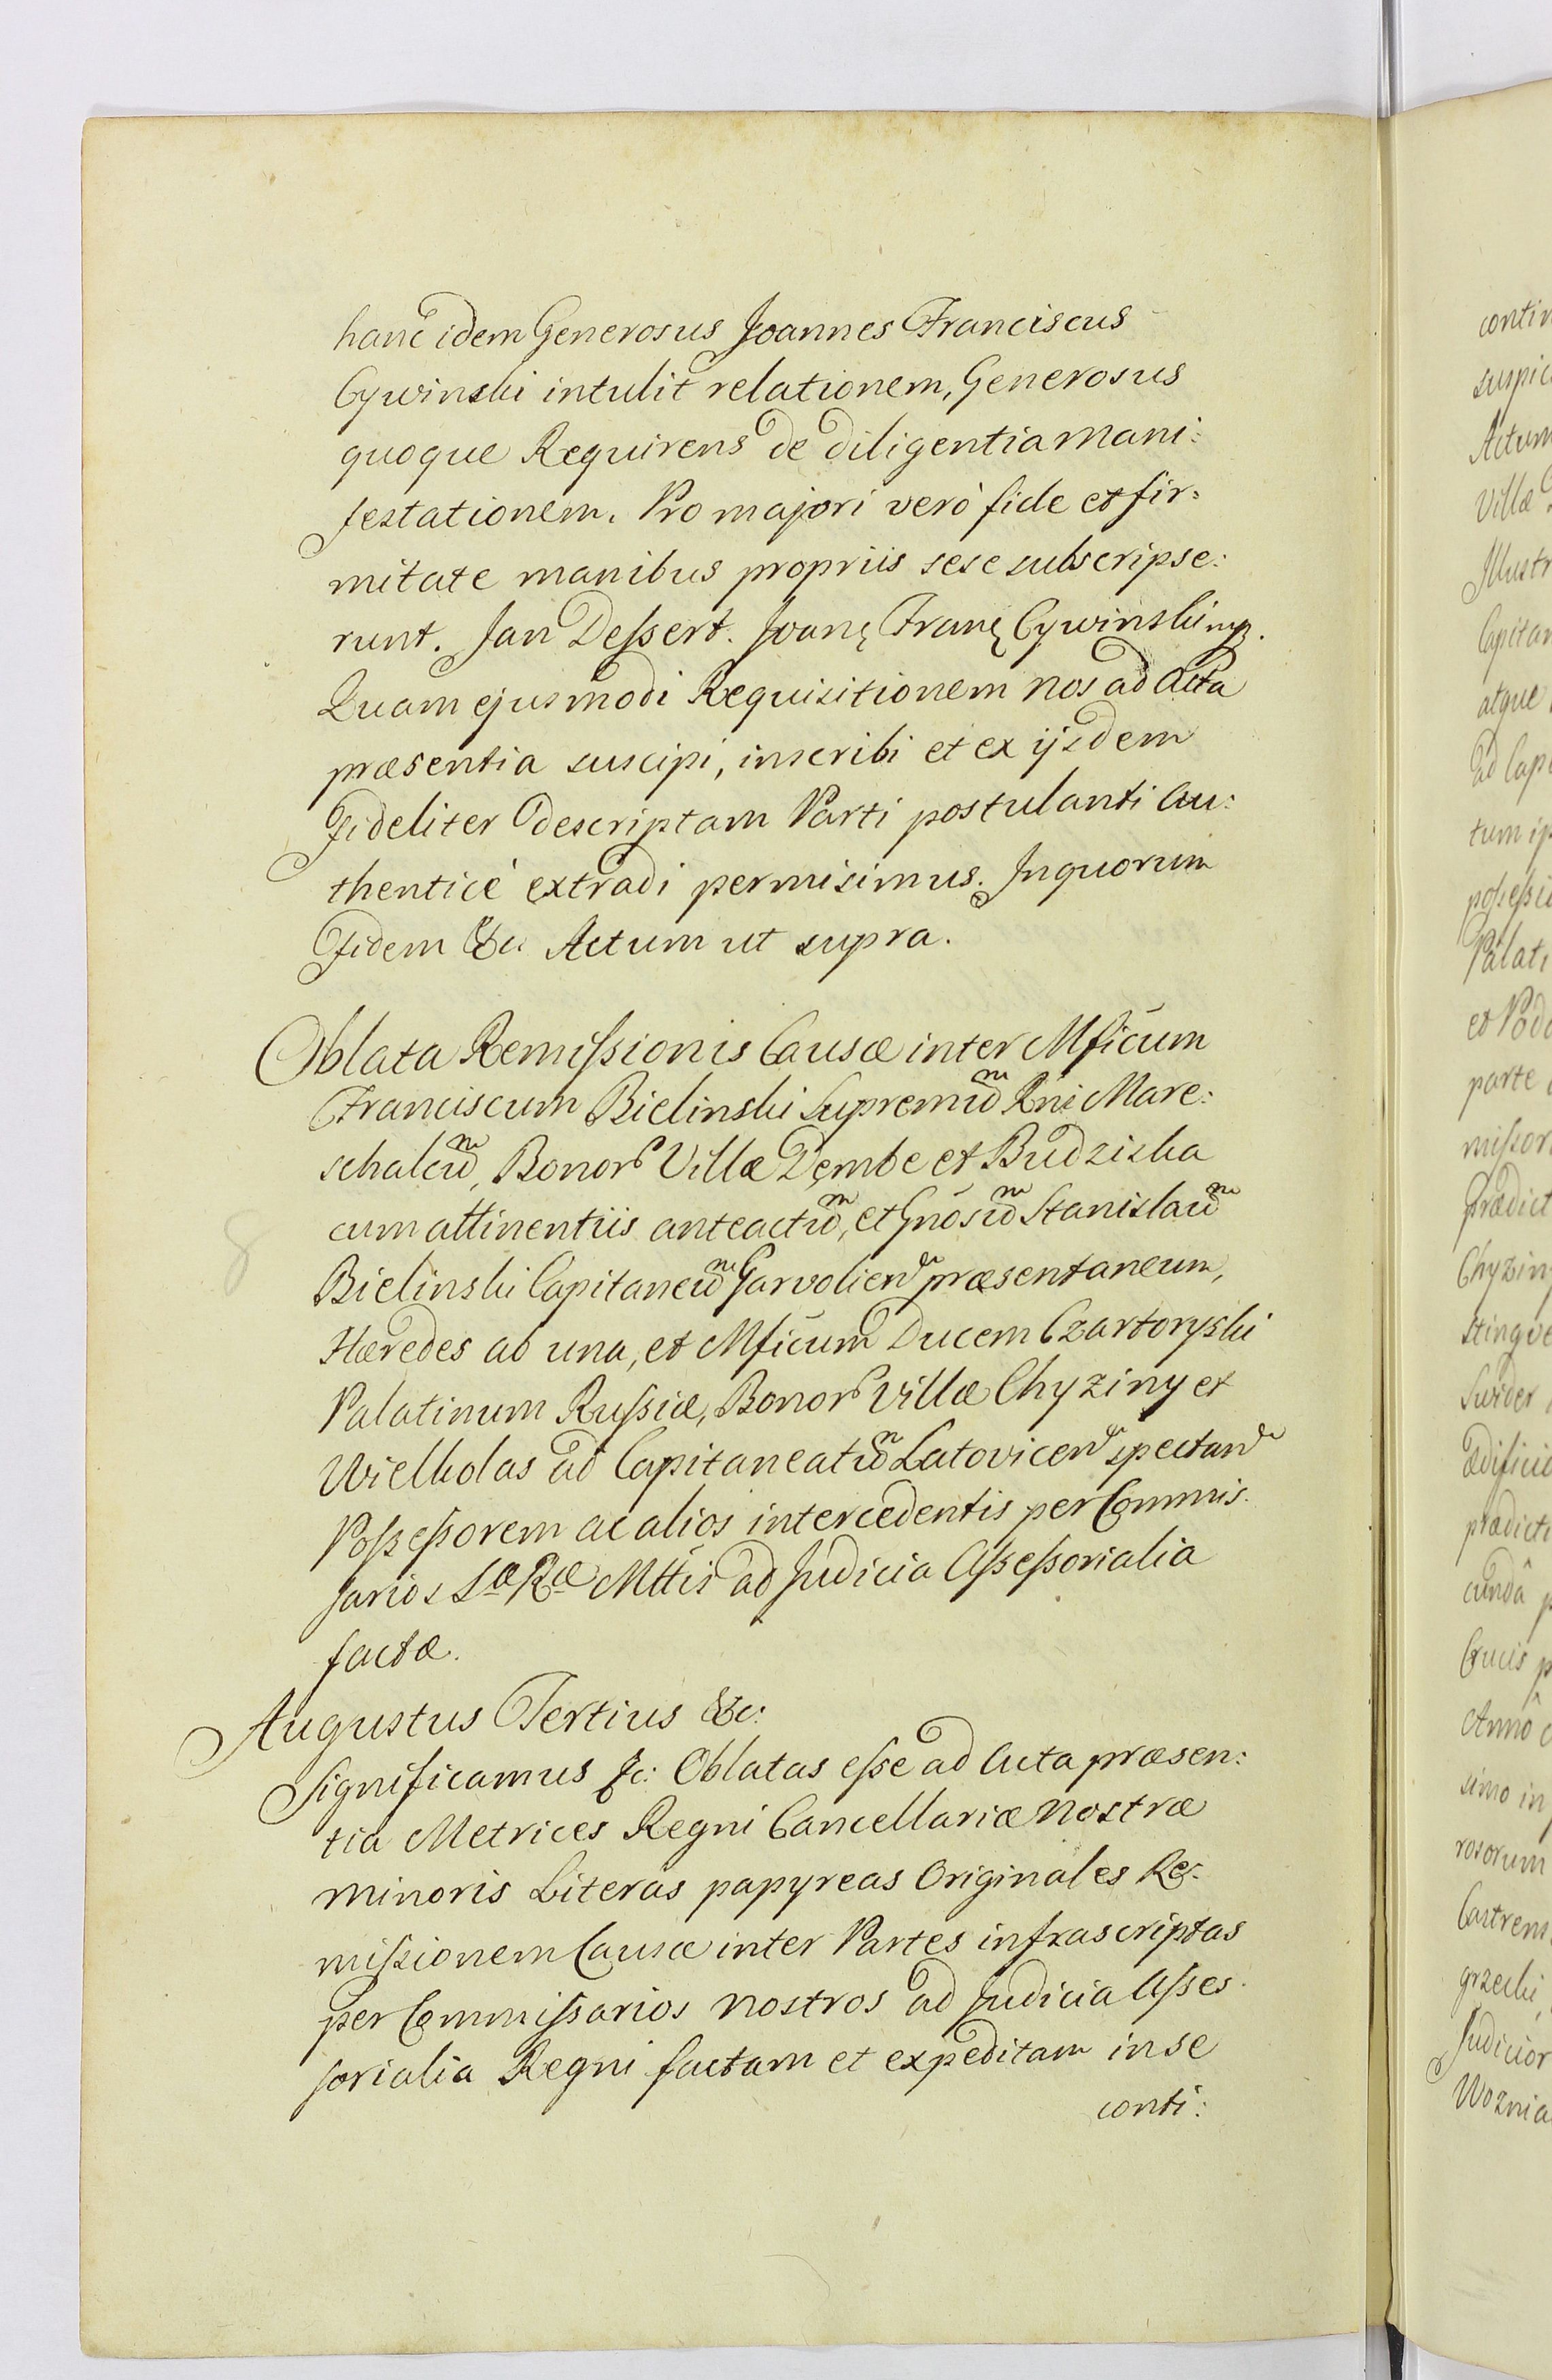 hanc idem Generosus Joannes Franciscus
Cywinski intulit relationem, Generosus
quoque Requirens de diligentia mani:
festationem. Pro majori verò fide et fir:
mitate manibus propriis sese subscripse:
runt. Jan Deßert. Joañ Franc Cywinski mp.
Quam ejusmodi Requisitionem nos ad Acta
præsentia suscipi, inscribi et ex ijsdem
Fideliter descriptam Parti postulanti Au:
thenticè extradi permisimus. In quorum
Fidem &c. Actum ut supra.
Oblata Remißionis Causæ inter Mficum
Franciscum Bielinski Supremum Rni Mare:
schalcum, Bonor Villæ Dęmbe et Budziska
cum attinentiis anteactum, et Gnosum Stanislaum
Bielinski Capitaneum Garvolien præsentaneum,
Hæredes ab una, et Mficum Ducem Czartoryski
Palatinum Rußiæ, Bonor Villæ Chyziny et
Wielholas ad Capitaneatum Latovicen spectan
Poßeßorem ac alios intercedentis per Commis:
sarios Sæ Ræ Mttis ad Judicia Aßeßorialia
factæ.
Augustus Tertius &c:
Significamus &c: Oblatas eße ad Acta præsen:
tia Metrices Regni Cancellariæ Nostræ
Minoris Literas papyreas Originales Re:
mißionem Causæ inter Partes infrascriptas
per Commißarios Nostros ad Judicia Aßes:
sorialia Regni factam et expeditam in se
conti:
contin
suspic
Actum
Villæ
Illustr
Capitan
atque
ad Capi
tum ip
poßeßio
Palati
et Podo
parte
mißor
prædict
Chyzin
stingve
Swider
ædificio
prædicti
cundâ p
Crucis p
Annô
simo in
rosorum
Castrens
grzecki
Judicior
Woznia